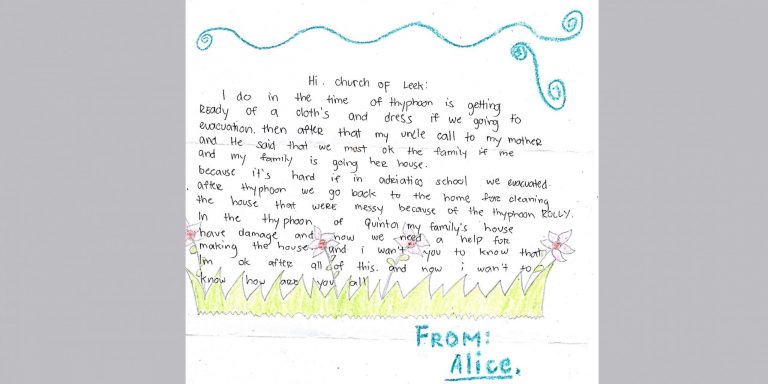 Hi. church of Leek:
I do in the time of thyphoon is getting
READY of a cloth's and dress if we going to
evacuation. then after that my uncle call to my mother
and He said that we must ok the family if me
and my family is going her house.
because it's hard if in adriatico school we evacuated.
after thyphoon we go back to the home for cleaning
the house that WERE messy because of the thyphoon ROLLY.
In the thyphoon of Quinta my family's house
have damage and now we need a help for
making the house. and i wan't you to know that
I'm ok after all of this. and now i wan't to
know how are you all
FROM:
Alice.